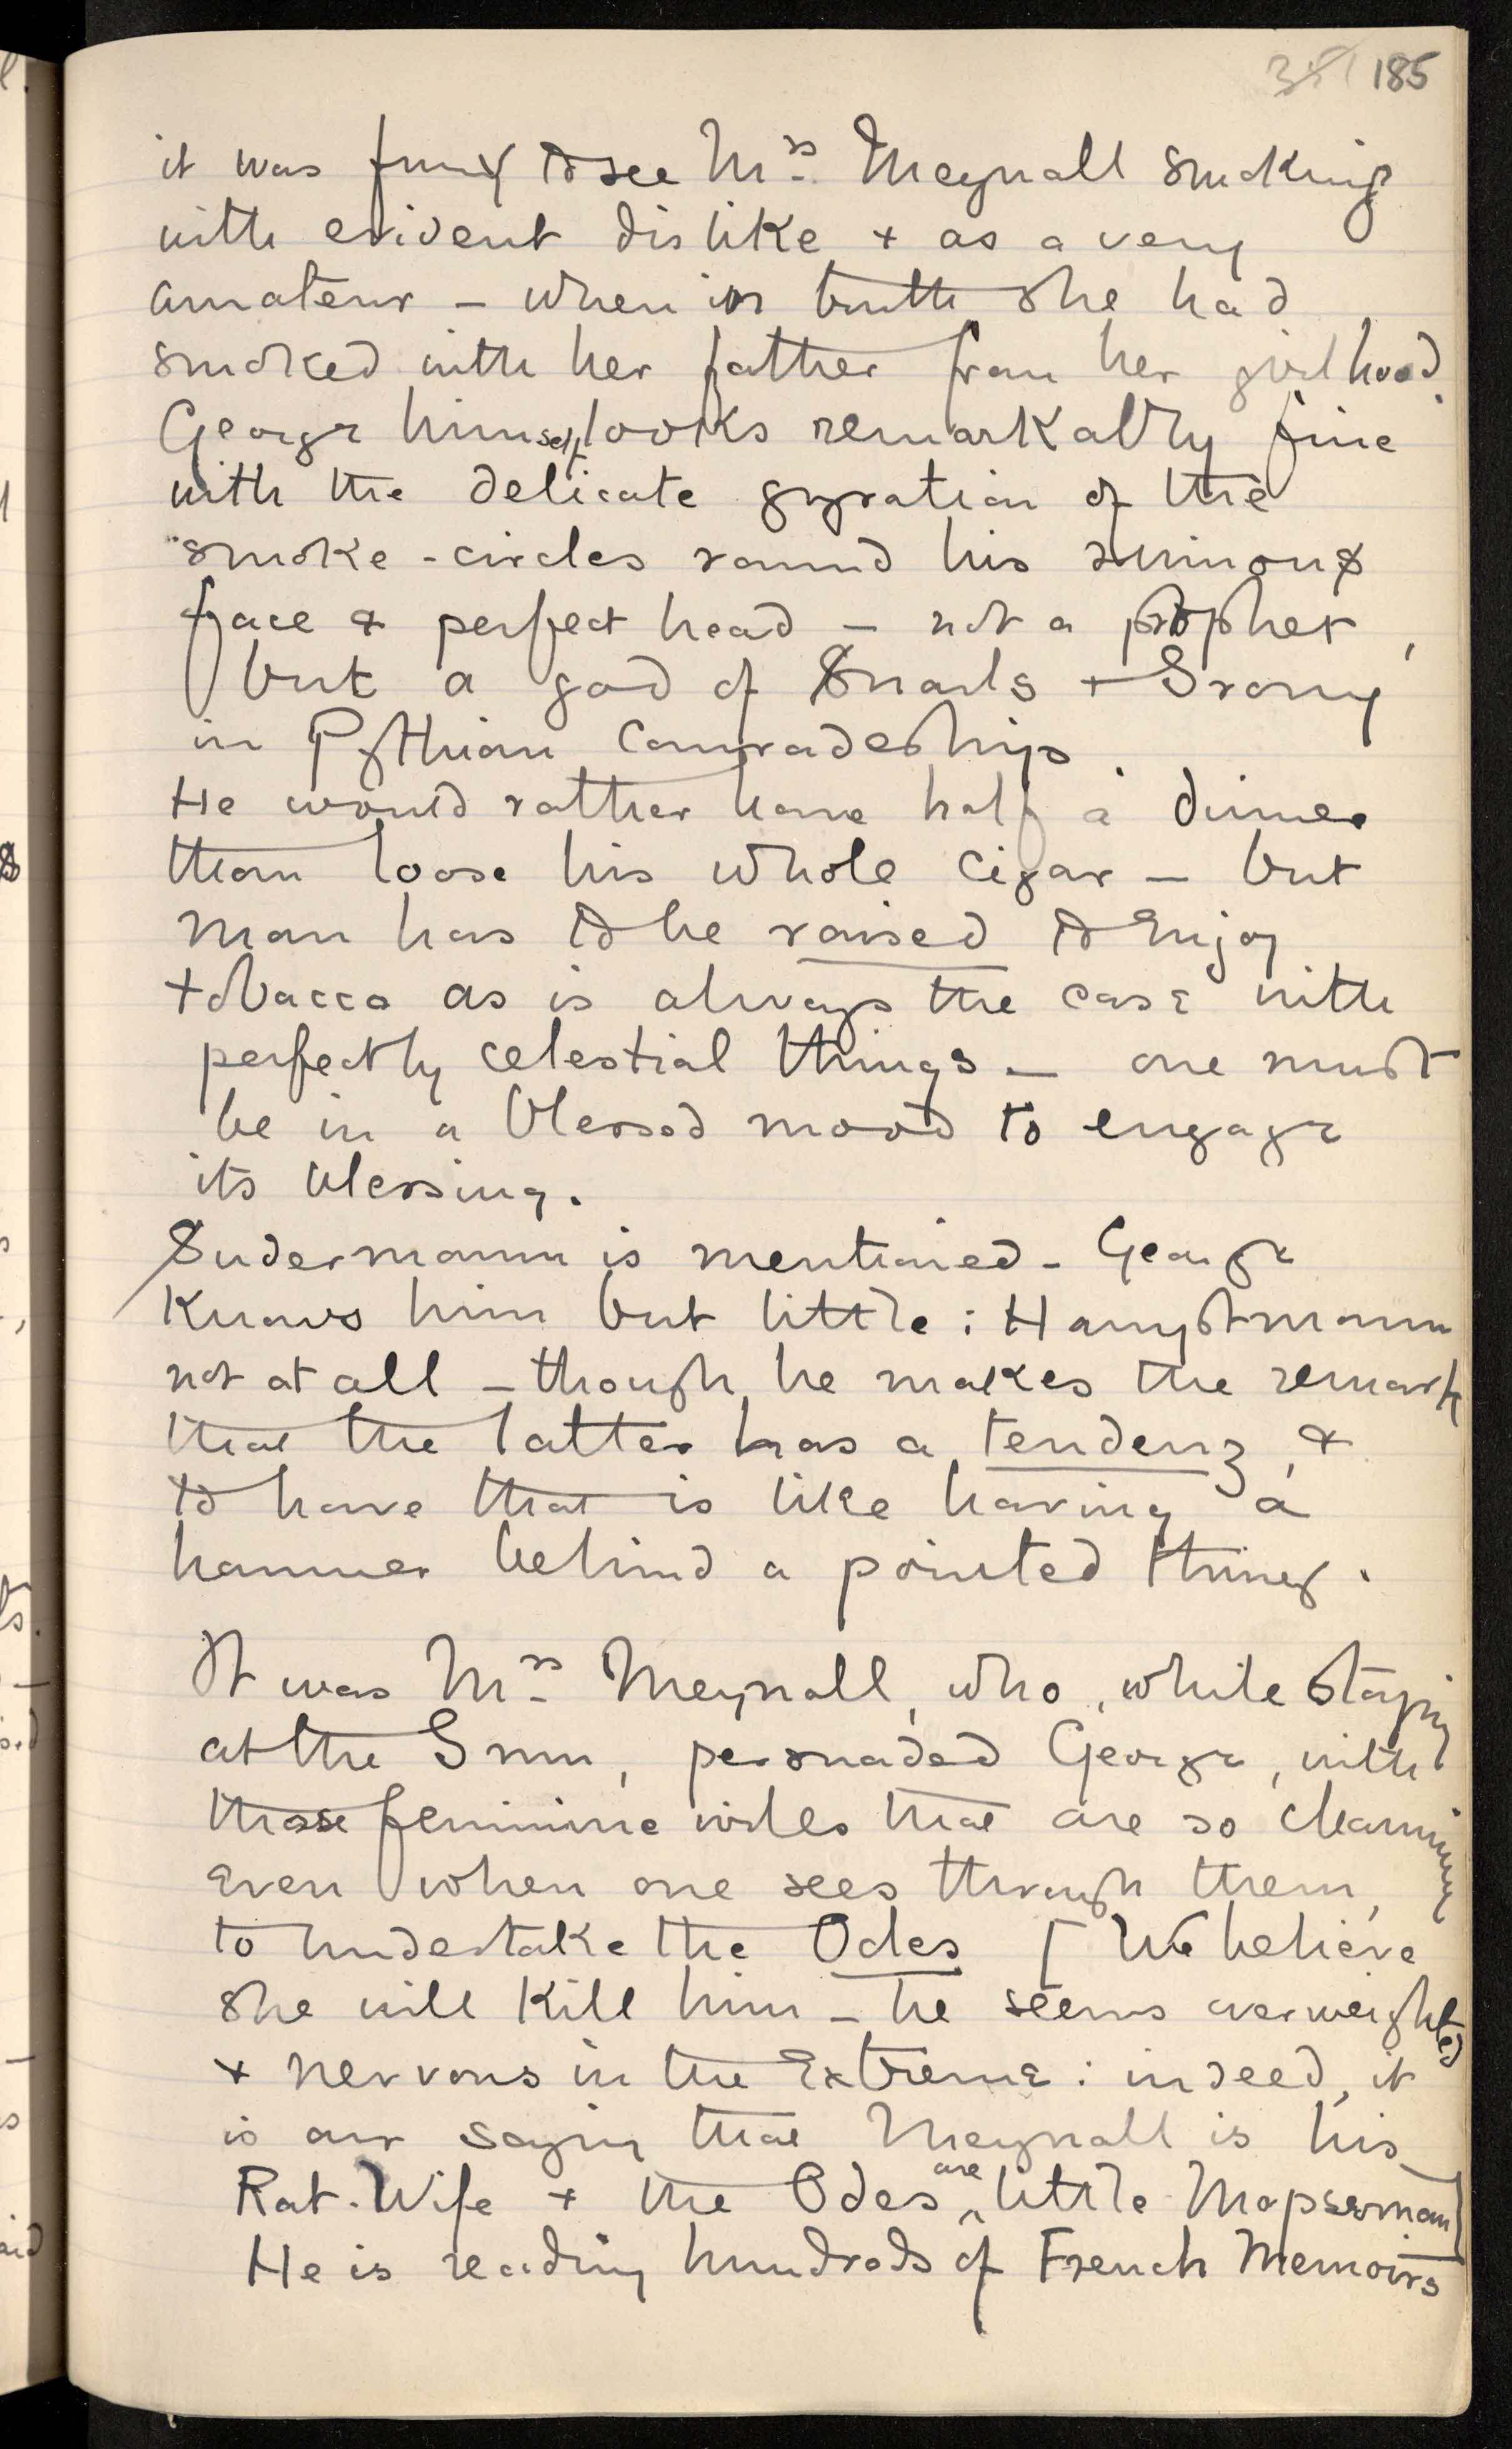 351 185
it was funny to see Mrs Meynall smoking
with evident dislike + as a very
amateur – when in truth she had
smoked with her father from her girlhood.
George himself looks remarkably fine
with the delicate gyration of the
smoke-circles round his
face & perfect head – not a prophet,
but a god of Snarls + Irony
in Pythian Comradeship.
He would rather have half a dinner
than loose his whole cigar – but
man has to be raised to enjoy
tobacco as is always the case with
perfectly celestial things – one must
be in a blessed mood to engage
its blessing.
Sudermann is mentioned – George
knows him but little : Hauptmann
not at all – though he makes the remark
that the latter has a tendenz, &
to have that is like having a
hammer behind a pointed thing.
It was Mrs Meynall, who, while staying
at the Inn, persuaded George, with
those feminine wiles that are so charming
even when one sees through them,
to undertake the Odes [We believe
she will kill him – he seems overweighted
+ nervous in the extreme : indeed, it
is our saying that Meynall is his
Rat-Wife + the Odes are little Mopseman]
He is reading hundreds of French Memoirs